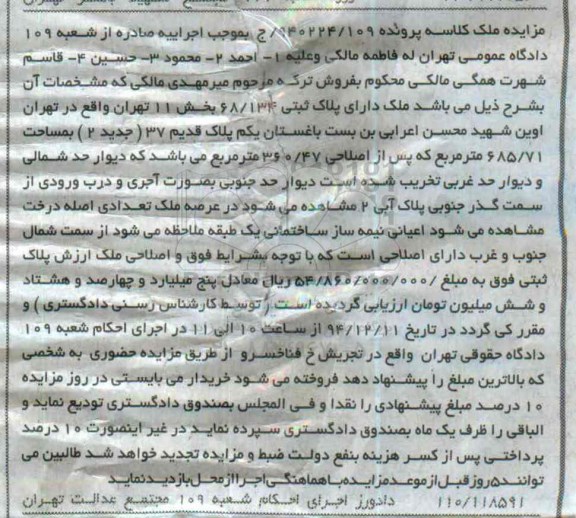 مزایده ملک کلاسه پرونده ۹۴۰۲۲۴/۱۰۹/ج بموجب اجراییه صادره از شعبه ۱۰۹
دادگاه عمومی تهران له فاطمه مالکی وعلیه ۱- احمد ۲- محمود ۳- حسین ۴- قاسم
شهرت همگی مالکی محکوم بفروش ترکه مرحوم میرمهدی مالکی که مشخصات آن
بشرح ذیل می باشد ملک دارای پلاک ثبتی ۶۸/۱۳۴ بخش ۱۱ تهران واقع در تهران
اوین شهید محسن اعرابی بن بست باغستان یکم پلاک قدیم ۳۷ ( جدید ۲ ) بمساحت
۶۸۵/۷۱ مترمربع که پس از اصلاحی ۳۶۰/۴۷ مترمربع می باشد که دیوار حد شمالی
و دیوار حد غربی تخریب شده است دیوار حد جنوبی بصورت آجری و درب ورودی از
سمت گذر جنوبی پلاک آبی ۲ مشاهده می شود در عرصه ملک تعدادی اصله درخت
مشاهده می شود اعیانی نیمه ساز ساختمانی یک طبقه ملاحظه می شود از سمت شمال
جنوب و غرب دارای اصلاحی است که با توجه بشرایط فوق و اصلاحی ملک ارزش پلاک
ثبتی فوق به مبلغ /۵۴/۸۶۰/۰۰۰/۰۰۰ ریال معادل پنج میلیارد و چهارصد و هشتاد
و شش میلیون تومان ارزیابی گردیده است ( توسط کارشناس رسمی دادگستری ) و
مقرر کی گردد در تاریخ ۹۴/۱۲/۱۱ از ساعت ۱۰ الی ۱۱ در اجرای احکام شعبه ۱۰۹
دادگاه حقوقی تهران واقع در تجریش خ فناخسرو از طریق مزایده حضوری به شخصی
که بالاترین مبلغ را پیشنهاد دهد فروخته می شود خریدار می بایستی در روز مزایده
۱۰ درصد مبلغ پیشنهادی را نقدا و فی المجلس بصندوق دادگستری تودیع نماید و
الباقی را ظرف یک ماه بصندوق دادگستری سپرده نماید در غیر اینصورت ۱۰ درصد
پرداختی پس از کسر هزینه بنفع دولت ضبط و مزایده تجدید خواهد شد طالبین می
توانند ۵ روز قبل از موعد مزایده با هماهنگی اجرا از محل بازدید نماید
۱۱۰/۱۱۸۵۹۱ دادورز اجرای احکام شعبه ۱۰۹ مجتمع عدالت تهران